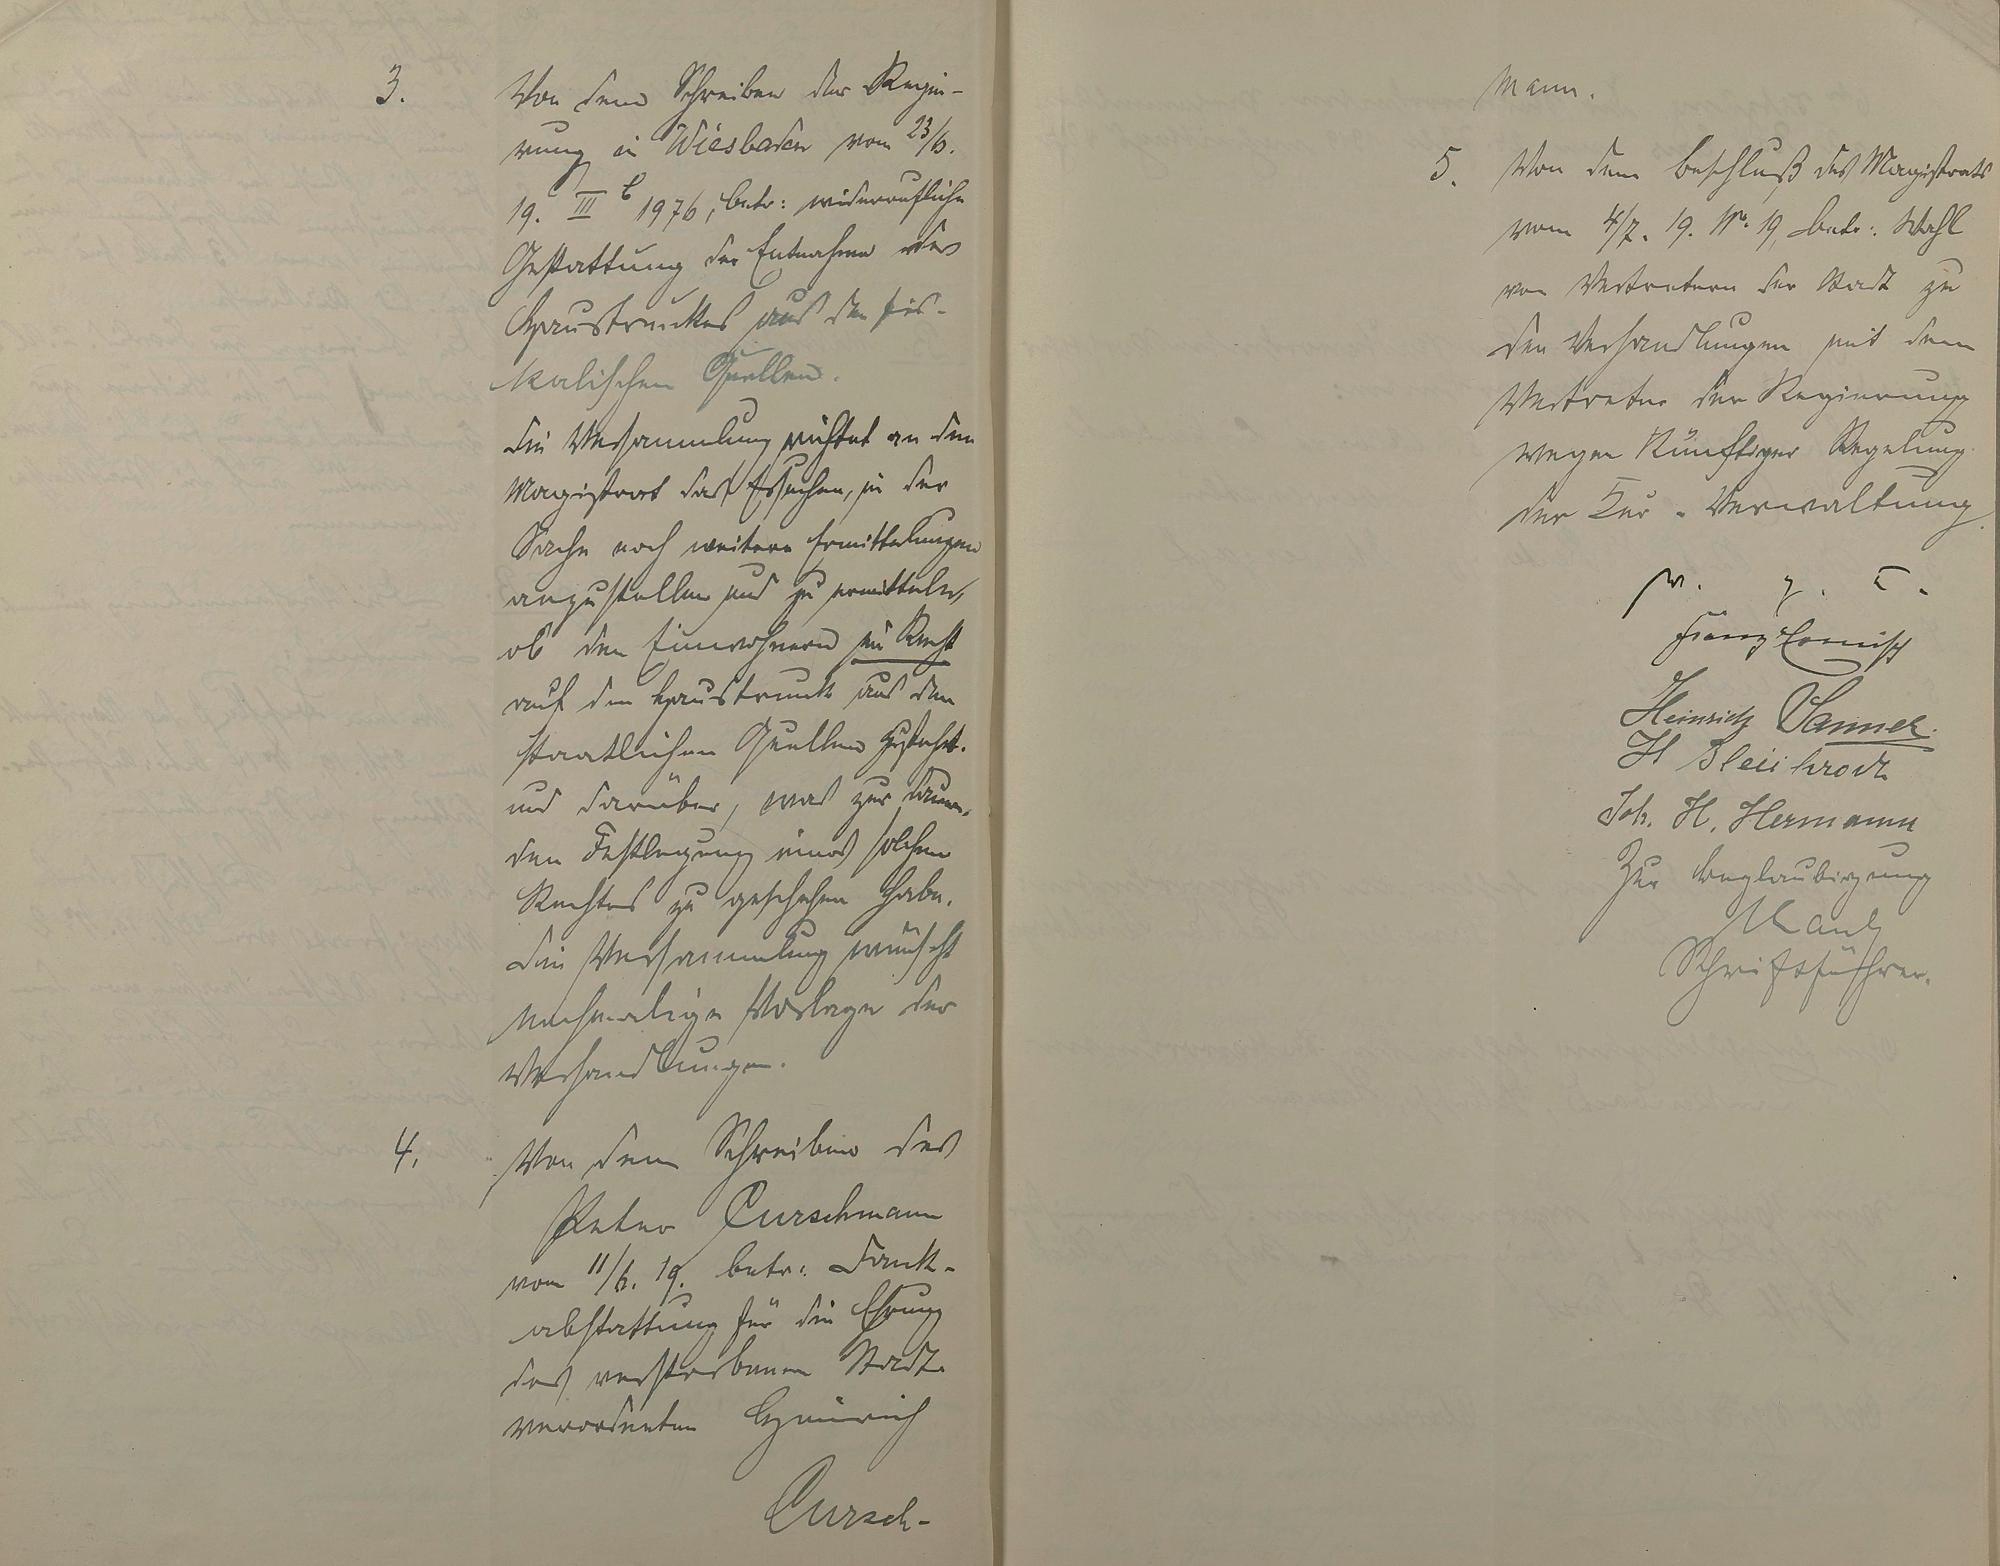 3. Von dem Schreiben der Regie-
rung in Wiesbaden vom 23/6.
19. III b 1976, betr: widerrufliche
Gestattung der Entnahme des
Haustrunkes aus den fis-
kalischen Quellen.
Die Versammlung richtet an den
Magistrat das Ersuchen, in der
Sache noch weitere Ermittelungen
anzustellen und zu ermitteln,
ob den Einwohnern ein Recht
auf den Haustrunk aus den
staatlichen Quellen zusteht.
und darüber, was zur dauern-
den Festlegung eines solchen
Rechtes zu geschehen habe.
Die Versammlung wünscht
nochmalige Vorlage der
Verhandlungen.
4. Von dem Schreiben des
Peter Curschmann
vom 11/6. 19. betr: Dank-
abstattung für die Ehrung
des verstorbenen Stadt-
verordneten Heinrich
Cursch-
mann.
5. Von dem Beschluß des Magistrats
vom 4/7. 19. No. 19, betr: Wahl
von Vertretern der Stadt zu
den Verhandlungen mit dem
Vertreter der Regierung
wegen künftiger Regelung
der Kur-Verwaltung
v. g. u.
Heinrich
H Bleibrodt
Joh. H. Hermann
Zur Beglaubigung
Schriftführer.